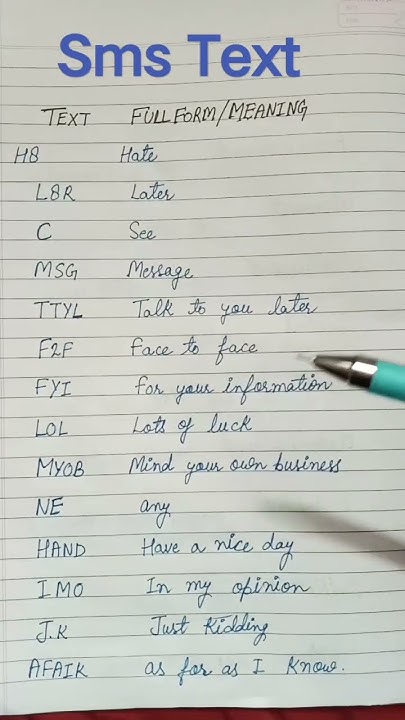 Sms Text
TEXT FULLFORM/MEANING
H8 Hate
L8R Later
C See
MSG Message
TTYL Talk to you later
F2F Face to face
FYI for your information
LOL Lots of luck
MYOB Mind your own business
NE any
HAND Have a nice day
IMO In my opinion
J.K Just Kidding
AFAIK as far as I know.